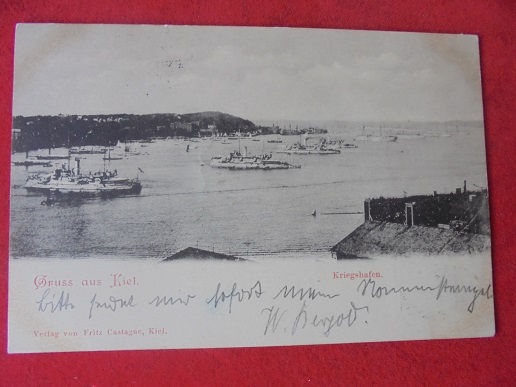 Gruss aus Kiel.
Kriegshafen.
bitte sendet mir sofort meinen
W. Bergod.
Verlag von Fritz Castagne, Kiel.